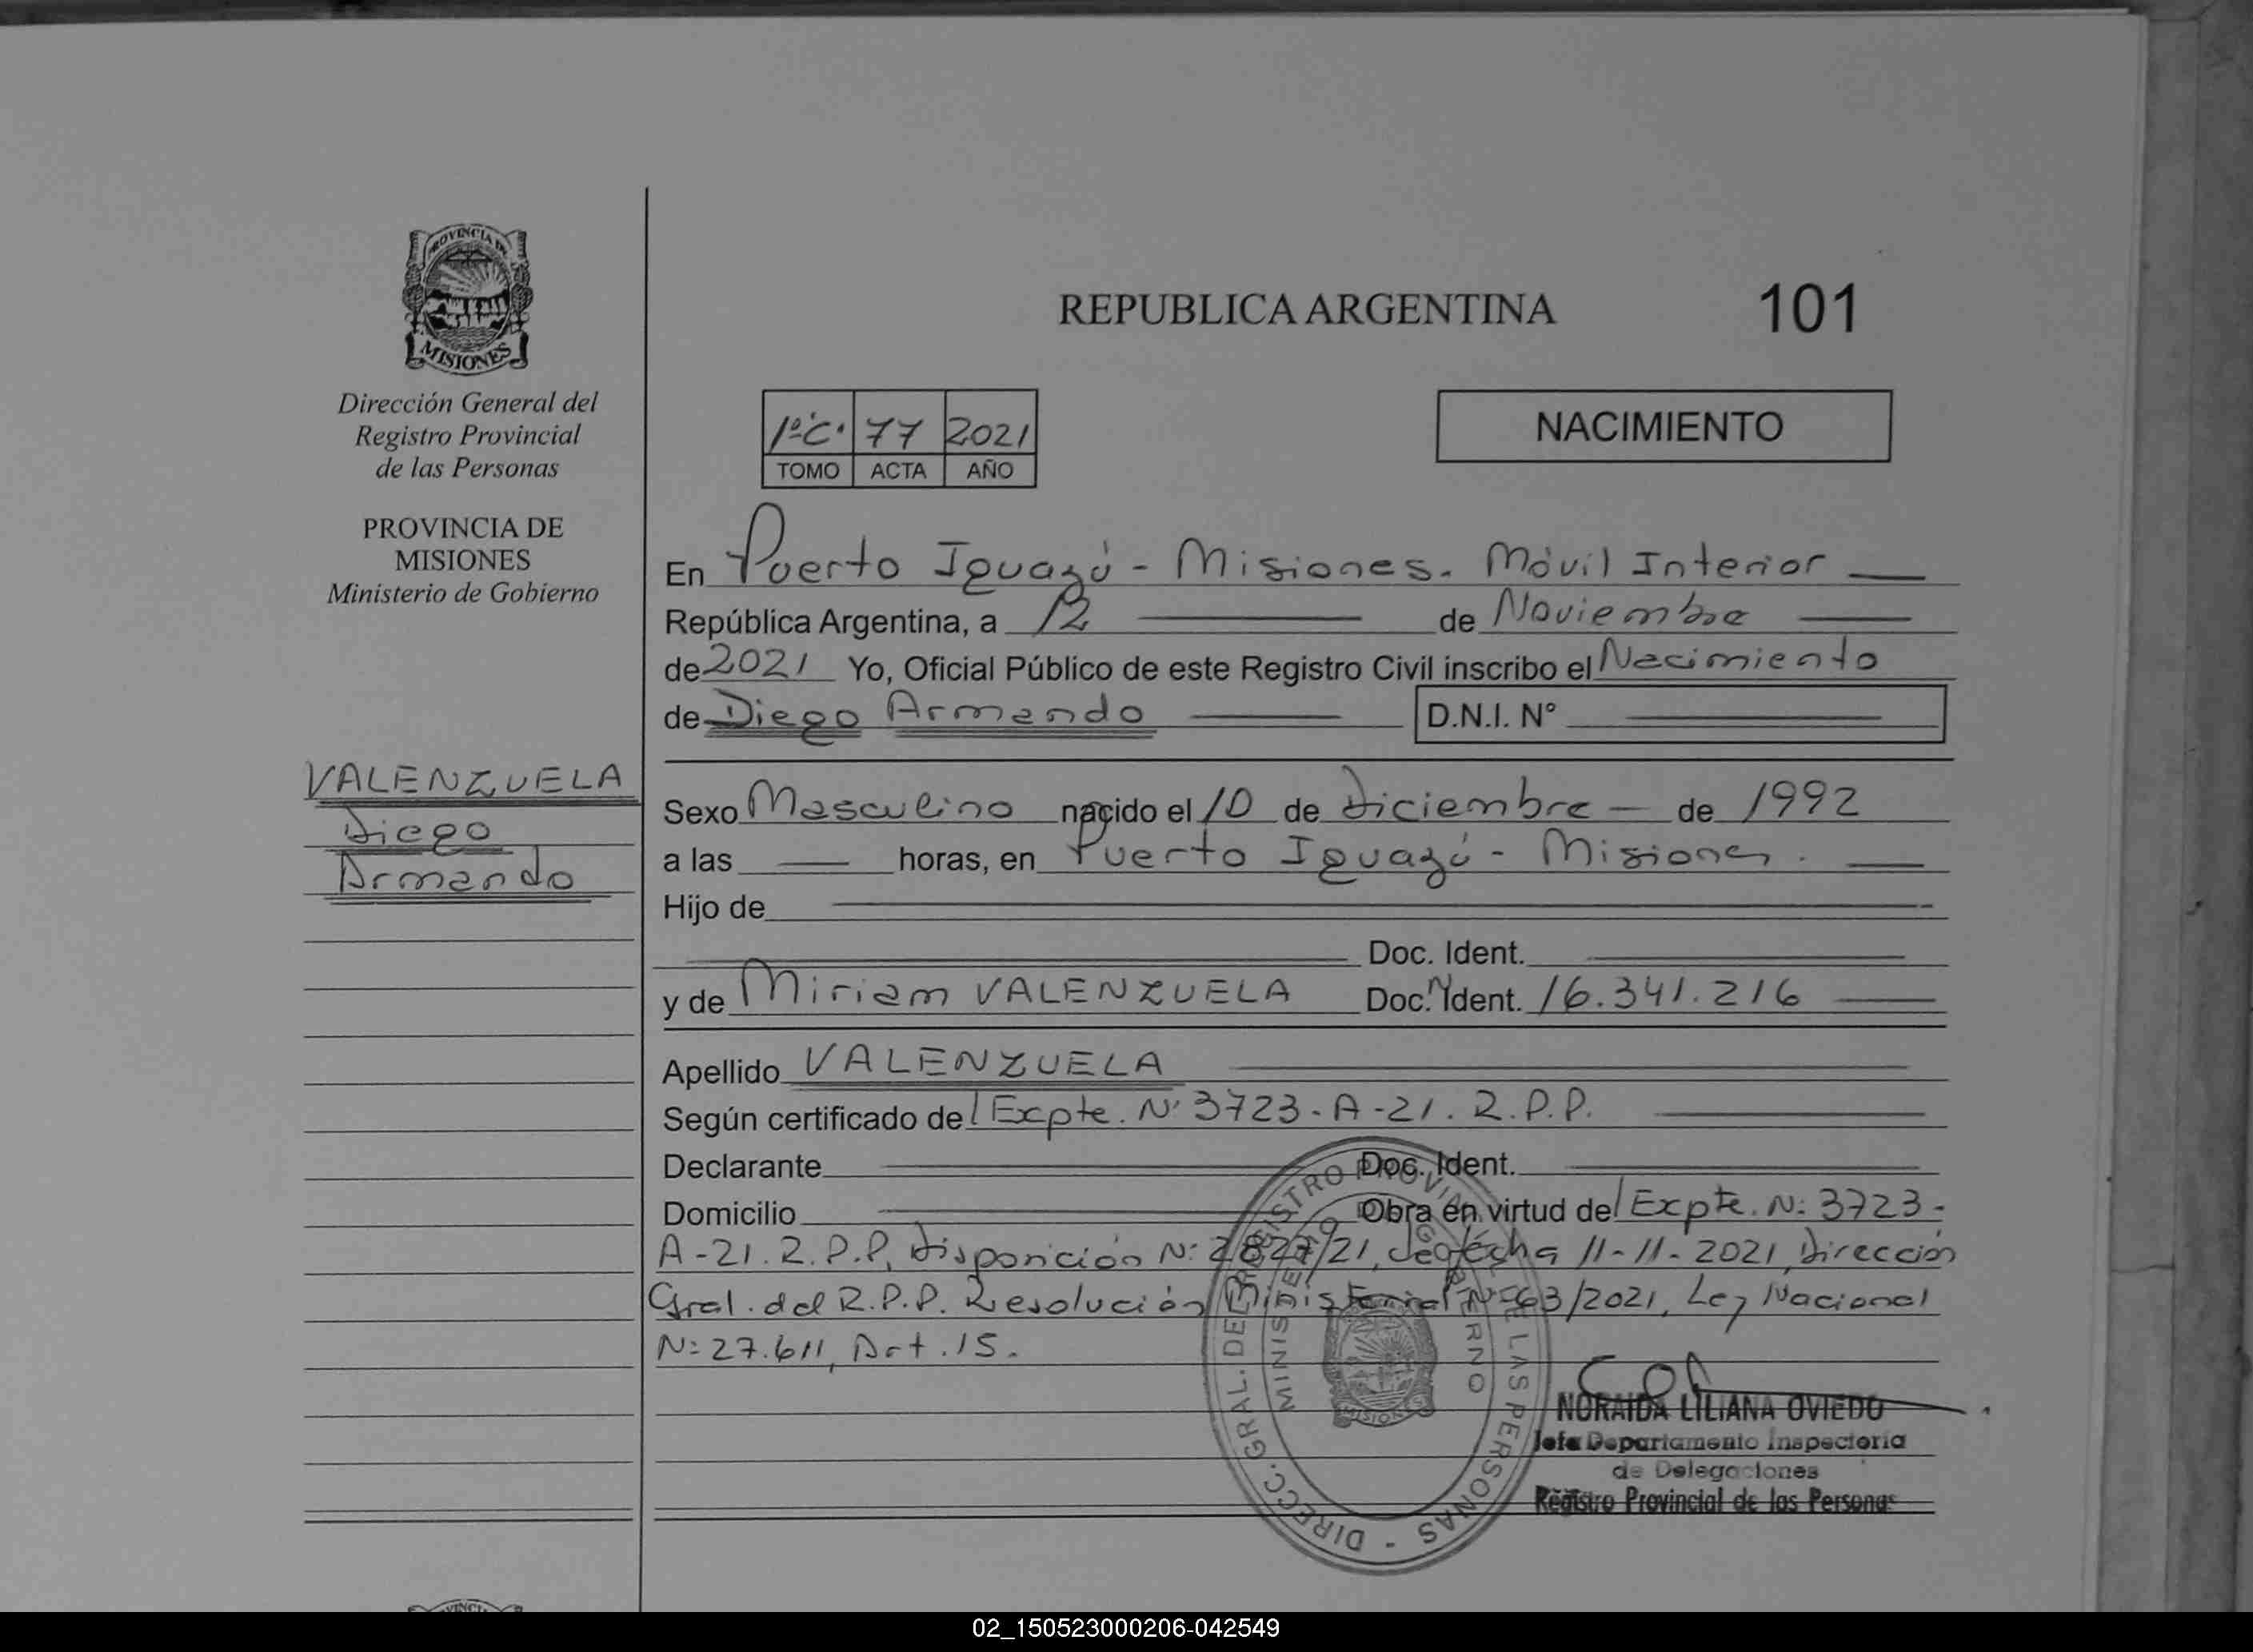 PROVINCIA DE
MISIONES
Dirección General del
Registro Provincial
de las Personas
PROVINCIA DE
MISIONES
Ministerio de Gobierno
VALENZUELA
Diego
Armando
REPUBLICA ARGENTINA 101
1º C. 77 2021
TOMO ACTA AÑO
NACIMIENTO
En Puerto Iguazú - Misiones. Móvil Interior
República Argentina, a 12 de Noviembre
de 2021 Yo, Oficial Público de este Registro Civil inscribo el Nacimiento
de Diego Armando D.N.I. N°
Sexo Masculino nacido el 10 de diciembre de 1992
a las horas, en Puerto Iguazú - Misiones.
Hijo de
Doc. Ident.
y de Miriam VALENZUELA Doc. Ident. 16.341.216
Apellido VALENZUELA
Según certificado de Expte. Nº 3723-A-21. R.P.P.
Declarante Doc. Ident.
Domicilio Obra en virtud del Expte. Nº 3723-
A-21. R.P.P, disposición Nº 2827/21, de fecha 11-11-2021, Dirección
Gral. del R.P.P. Resolución Ministerial Nº 63/2021, Ley Nacional
Nº 27.611, Art. 15.
DIRECC. GRAL. DEL REGISTRO PROVINCIAL DE LAS PERSONAS -
MINISTERIO DE GOBIERNO
MISIONES
NORAIDA LILIANA OVIEDO
Jefa Departamento Inspectoria
de Delegaciones
Registro Provincial de las Personas
02_150523000206-042549